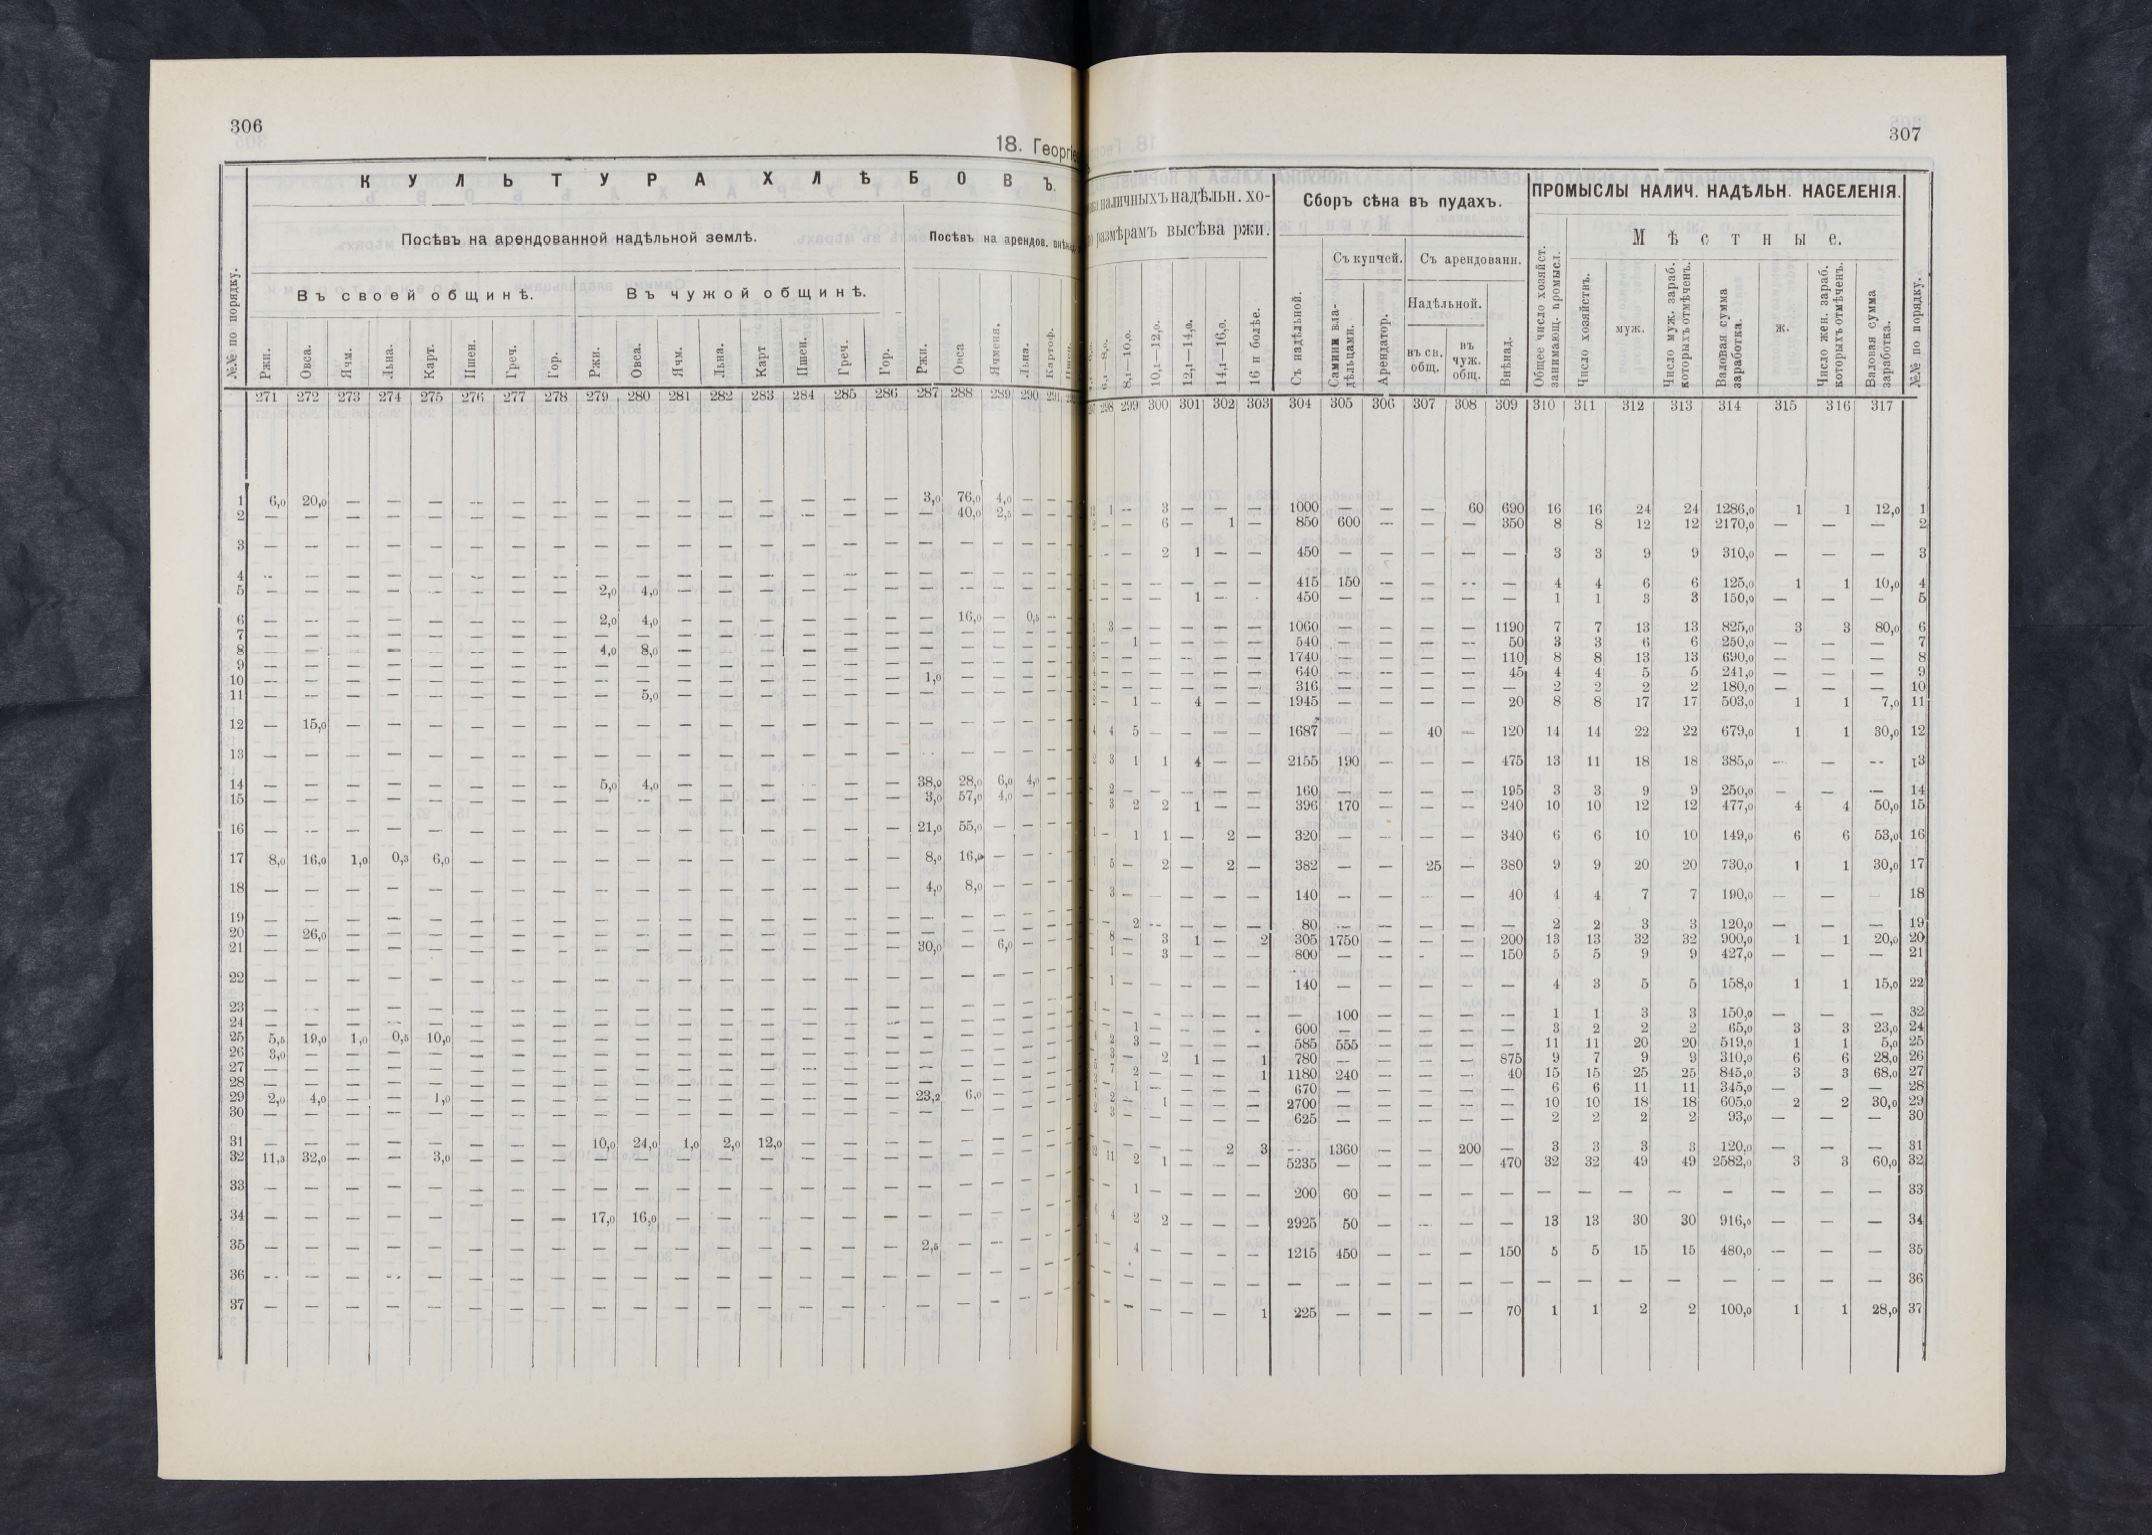 306
18. Георгіе
К У Л Ь Т У Р А Х Л Ѣ Б О В Ъ.
Посѣвъ на арендованной надѣльной землѣ. Посѣвъ на арендов.
Въ своей общинѣ. Въ чужой общинѣ.
№№ по порядку. Ржи. Овса. Ячм. Льна. Карт. Пшен. Греч. Гор. Ржи. Овса. Ячм. Льна. Карт Пшен. Греч. Гор. Ржи. Овса Ячменя. Льна. Картоф.
271 272 273 274 275 276 277 278 279 280 281 282 283 284 285 286 287 288 289 290 291
1 6,0 20,0 — — — — — — — — — — — — — — 3,0 76,0 4,0 — —
2 — — — — — — — — — — — — — — — — — 40,0 2,5 — —
3 — — — — — — — — — — — — — — — — — — — — —
4 — — — — — — — — — — — — — — — — — — — — —
5 — — — — — — — — 2,0 4,0 — — — — — — — — — — —
6 — — — — — — — — 2,0 4,0 — — — — — — — 16,0 — 0,5 —
7 — — — — — — — — — — — — — — — — — — — — —
8 — — — — — — — — 4,0 8,0 — — — — — — — — — — —
9 — — — — — — — — — — — — — — — — — — — — —
10 — — — — — — — — — — — — — — — — 1,0 — — — —
11 — — — — — — — — — 5,0 — — — — — — — — — — —
12 — 15,0 — — — — — — — — — — — — — — — — — — —
13 — — — — — — — — — — — — — — — — — — — — —
14 — — — — — — — — 5,0 4,0 — — — — — — 38,0 28,0 6,0 4,0 —
15 — — — — — — — — — — — — — — — — 3,0 57,0 4,0 — —
16 — — — — — — — — — — — — — — — — 21,0 55,0 — — —
17 8,0 16,0 1,0 0,3 6,0 — — — — — — — — — — — 8,0 16,0 — — —
18 — — — — — — — — — — — — — — — — 4,0 8,0 — — —
19 — — — — — — — — — — — — — — — — — — — — —
20 — 26,0 — — — — — — — — — — — — — — — — — — —
21 — — — — — — — — — — — — — — — — 30,0 — 6,0 — —
22 — — — — — — — — — — — — — — — — — — — — —
23 — — — — — — — — — — — — — — — — — — — — —
24 — — — — — — — — — — — — — — — — — — — — —
25 5,5 19,0 1,0 0,5 10,0 — — — — — — — — — — — — — — — —
26 3,0 — — — — — — — — — — — — — — — — — — — —
27 — — — — — — — — — — — — — — — — — — — — —
28 — — — — — — — — — — — — — — — — — — — — —
29 2,0 4,0 — — 1,0 — — — — — — — — — — — 23,2 6,0 — — —
30 — — — — — — — — — — — — — — — — — — — — —
31 — — — — — — — — 10,0 24,0 1,0 2,0 12,0 — — — — — — — —
32 11,3 32,0 — — 3,0 — — — — — — — — — — — — — — — —
33 — — — — — — — — — — — — — — — — — — — — —
34 — — — — — — — — 17,0 16,0 — — — — — — — — — — —
35 — — — — — — — — — — — — — — — — 2,5 — — — —
36 — — — — — — — — — — — — — — — — — — — — —
37 — — — — — — — — — — — — — — — — — — — — —
307
наличныхъ надѣльн. хо- Сборъ сѣна въ пудахъ. ПРОМЫСЛЫ НАЛИЧ. НАДѢЛЬН. НАСЕЛЕНІЯ.
размѣрамъ высѣва ржи. Съ купчей. Съ арендованн. М ѣ с т н ы е.
6,1—8,0. 8,1—10,0. 10,1—12,0. 12,1—14,0. 14,1—16,0. 16 и болѣе. Съ надѣльной. Самими владѣльцами. Арендатор. Надѣльной. въ св. общ. въ чуж. общ. Внѣнад. Общее число хозяйст. занимающ. промысл. Число хозяйствъ. муж. Число муж. зараб. которыхъ отмѣченъ. Валовая сумма заработка. ж. Число жен. зараб. которыхъ отмѣченъ. Валовая сумма заработка. №№ по порядку.
298 299 300 301 302 303 304 305 306 307 308 309 310 311 312 313 314 315 316 317
1 — 3 — — — 1000 — — — 60 690 16 16 24 24 1286,0 1 1 12,0 1
— — 6 — 1 — 850 600 — — — 350 8 8 12 12 2170,0 — — — 2
— — 2 1 — — 450 — — — — — 3 3 9 9 310,0 — — — 3
— — — — — — 415 150 — — — — 4 4 6 6 125,0 1 1 10,0 4
— — — 1 — — 450 — — — — — 1 1 3 3 150,0 — — — 5
3 — — — — — 1060 — — — — 1190 7 7 13 13 825,0 3 3 80,0 6
— 1 — — — — 540 — — — — 50 3 3 6 6 250,0 — — — 7
— — — — — — 1740 — — — — 110 8 8 13 13 690,0 — — — 8
— — — — — — 640 — — — — 45 4 4 5 5 241,0 — — — 9
— — — — — — 316 — — — — — 2 2 2 2 180,0 — — — 10
— 1 — 4 — — 1945 — — — — 20 8 8 17 17 503,0 1 1 7,0 11
4 5 — — — — 1687 — — 40 — 120 14 14 22 22 679,0 1 1 30,0 12
3 1 1 4 — — 2155 190 — — — 475 13 11 18 18 385,0 — — — 13
2 — — — — — 160 — — — — 195 3 3 9 9 250,0 — — — 14
3 2 2 1 — — 396 170 — — — 240 10 10 12 12 477,0 4 4 50,0 15
— 1 1 — 2 — 320 — — — — 340 6 6 10 10 149,0 6 6 53,0 16
5 — 2 — 2 — 382 — — 25 — 380 9 9 20 20 730,0 1 1 30,0 17
3 — — — — — 140 — — — — 40 4 4 7 7 190,0 — — — 18
— 2 — — — — 80 — — — — — 2 2 3 3 120,0 — — — 19
8 — 3 1 — 2 305 1750 — — — 200 13 13 32 32 900,0 1 1 20,0 20
1 — 3 — — — 800 — — — — 150 5 5 9 9 427,0 — — — 21
1 — — — — — 140 — — — — — 4 3 5 5 158,0 1 1 15,0 22
— — — — — — — 100 — — — — 1 1 3 3 150,0 — — — 32
— 1 — — — — 600 — — — — — 3 2 2 2 65,0 3 3 23,0 24
2 3 — — — — 585 555 — — — — 11 11 20 20 519,0 1 1 5,0 25
3 — 2 1 — 1 780 — — — — 875 9 7 9 9 310,0 6 6 28,0 26
7 2 — — — 1 1180 240 — — — 40 15 15 25 25 845,0 3 3 68,0 27
— 1 — — — — 670 — — — — — 6 6 11 11 345,0 — — — 28
2 — 1 — — — 2700 — — — — — 10 10 18 18 605,0 2 2 30,0 29
3 — — — — — 625 — — — — — 2 2 2 2 93,0 — — — 30
— — — — 2 3 — 1360 — — 200 — 3 3 3 3 120,0 — — — 31
11 2 1 — — — 5235 — — — — 470 32 32 49 49 2582,0 3 3 60,0 32
— 1 — — — — 200 60 — — — — — — — — — — — — 33
4 2 2 — — — 2925 50 — — — — 13 13 30 30 916,0 — — — 34
— 4 — — — — 1215 450 — — — 150 5 5 15 15 480,0 — — — 35
— — — — — — — — — — — — — — — — — — — — 36
— — — — — 1 225 — — — — 70 1 1 2 2 100,0 1 1 28,0 37